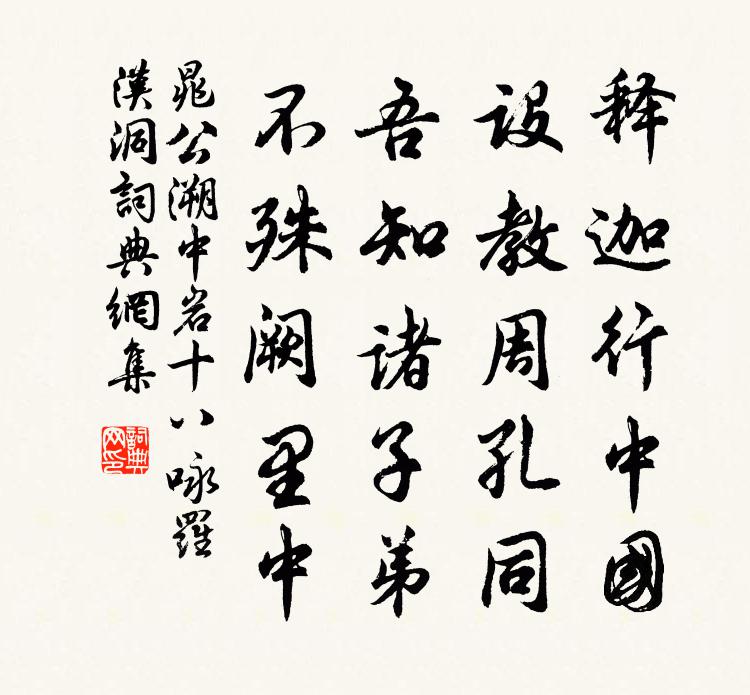 释迦行中國
設教周孔同
吾知諸子弟
不殊阙里中
晁公溯中岩十八咏羅
漢洞詞典網集
詞典網印